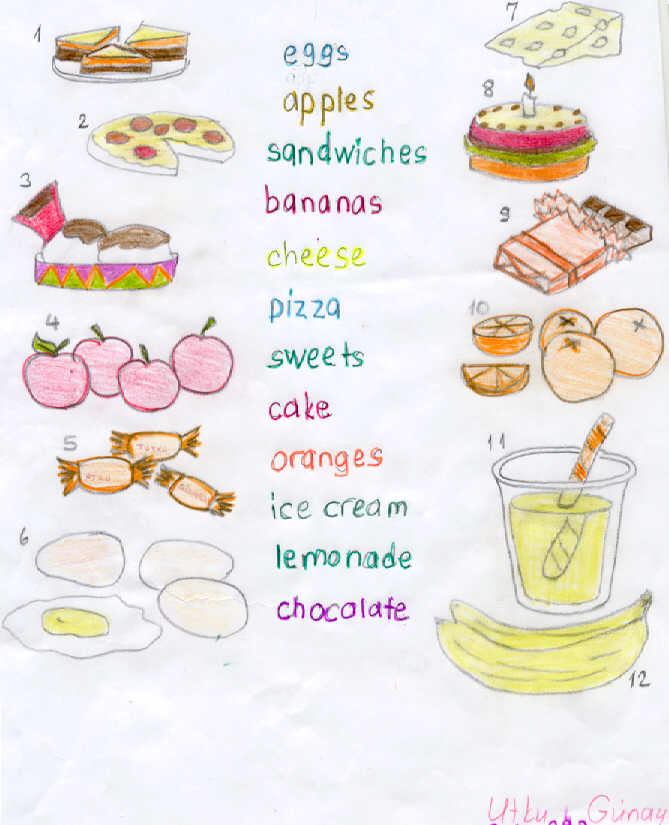 1
eggs
apples
sandwiches
bananas
cheese
pizza
sweets
cake
oranges
ice cream
lemonade
chocolate
2
3
4
5
6
7
8
9
10
11
12
Utku Günay